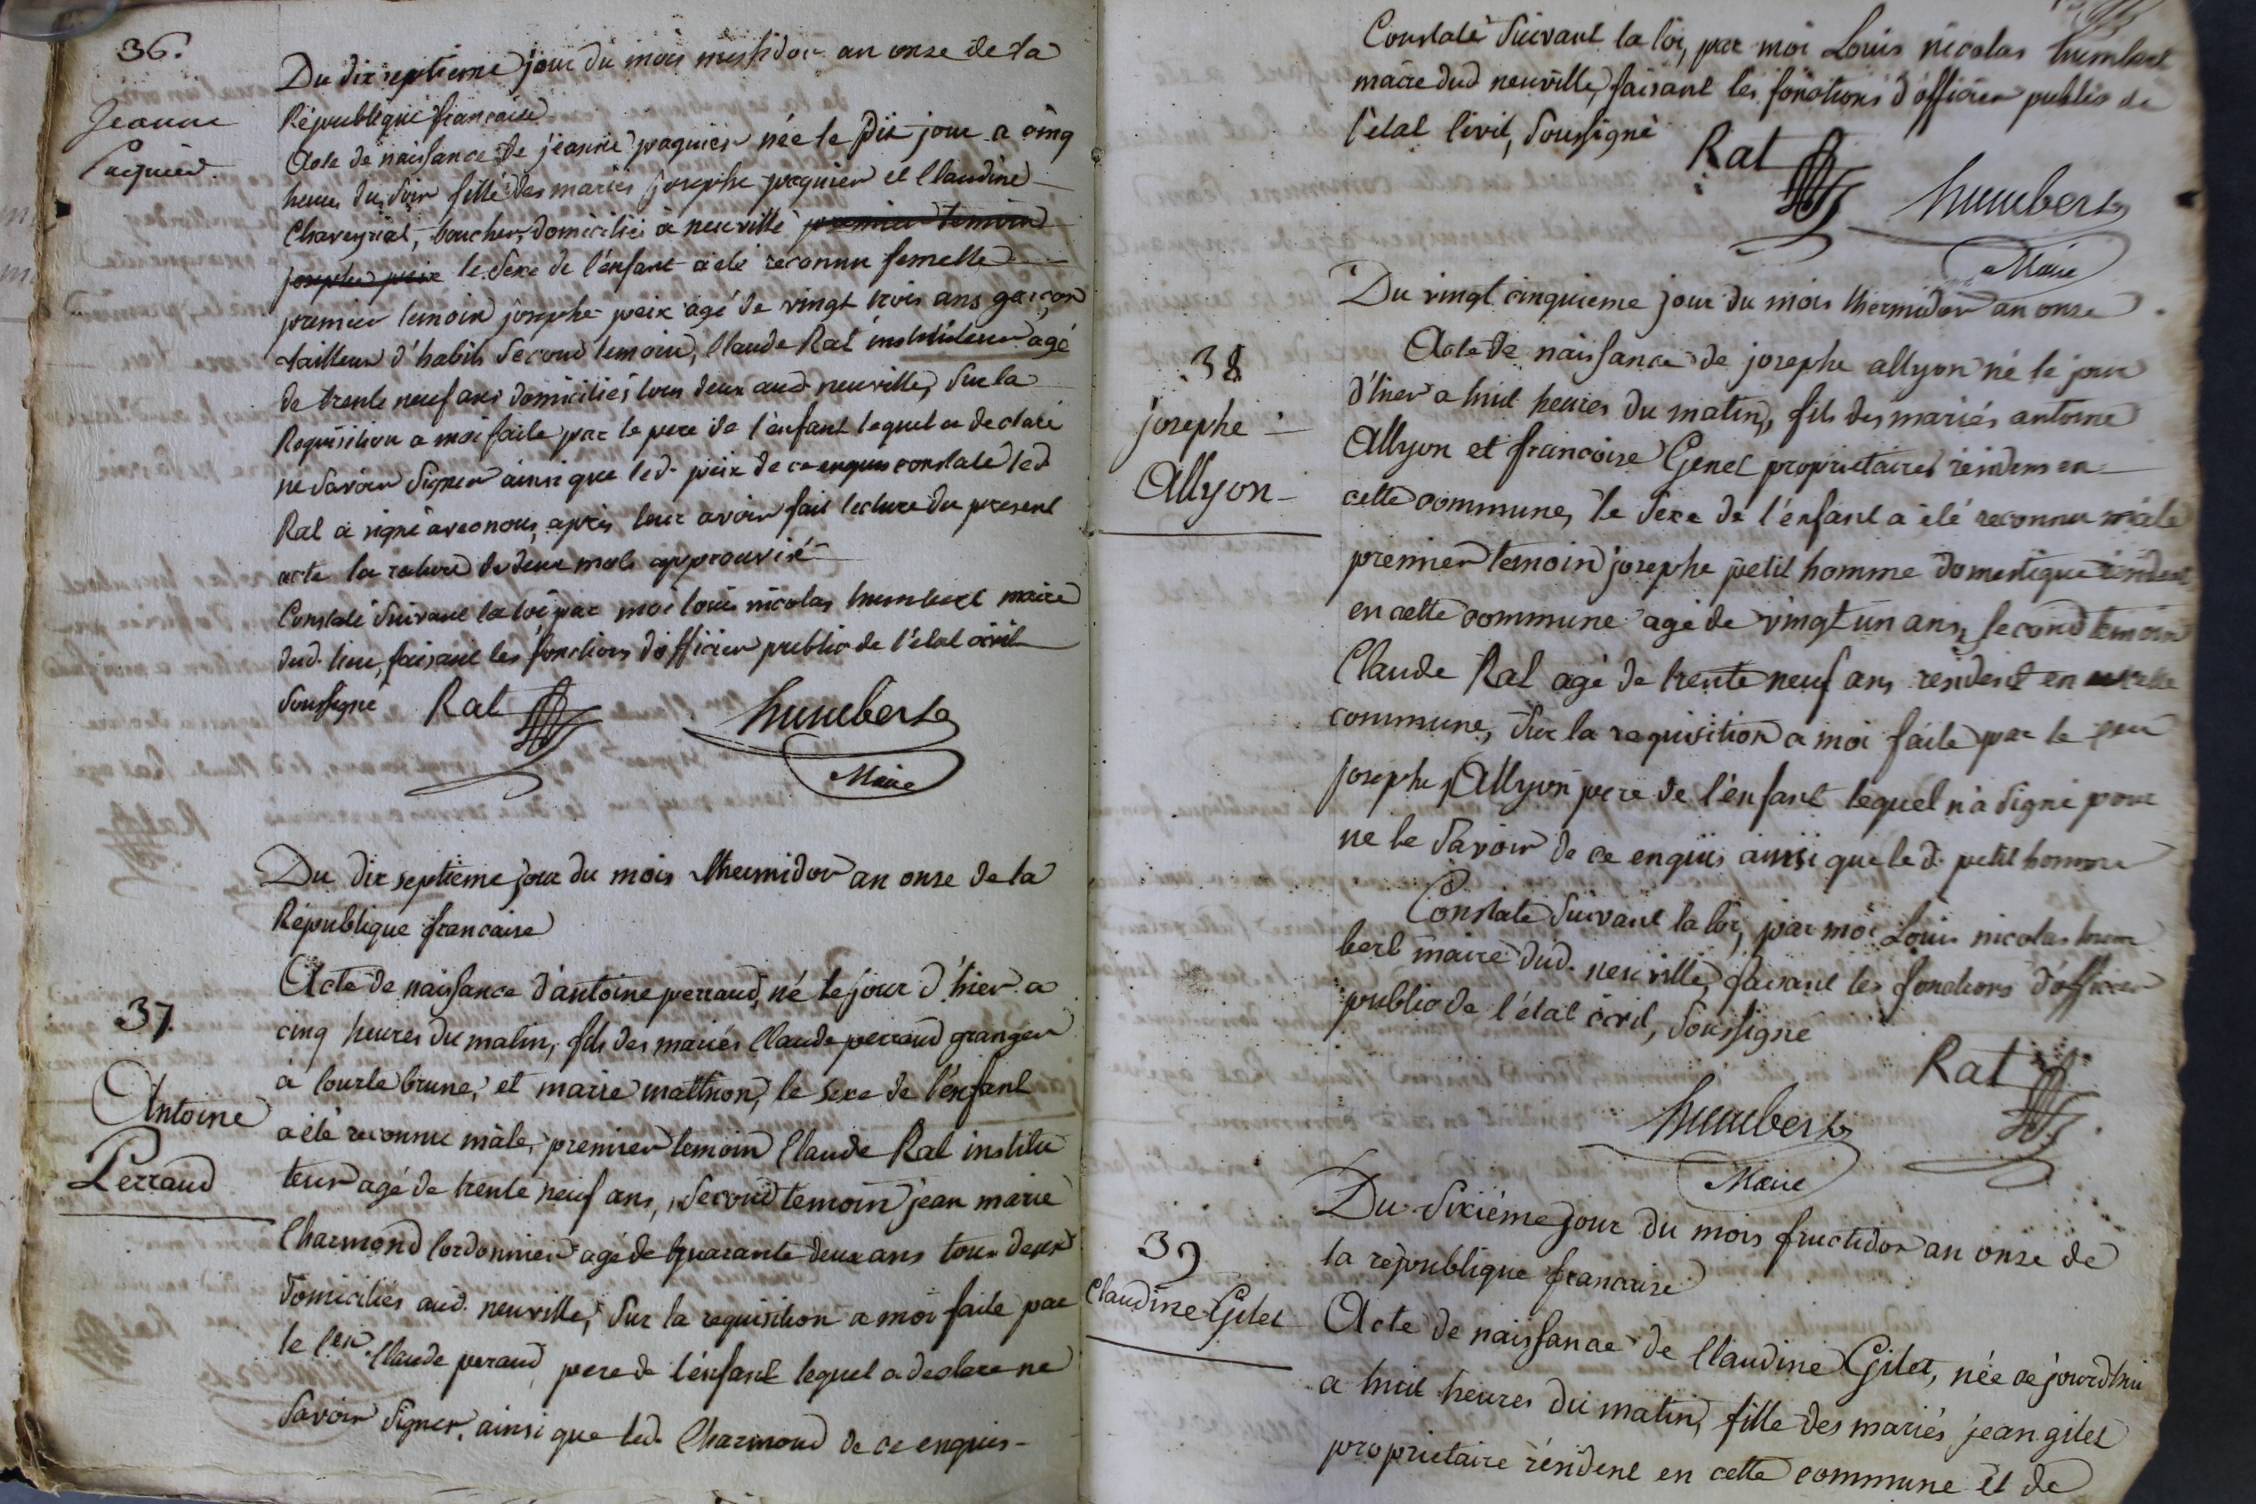 36.
Jeanne
Paquier.
Du dix septieme jour du mois messidor an onze de la
République francaise
Acte de naissance de jeanne paquier née le dit jour a cinq
heures du soir fille des mariés josephe paquier et Claudine
Chaveyriat, boucher, domiciliés a neuville premier temoin
josephe peix le sexe de l'enfant a été reconnu femelle
premier temoin josephe peix agé de vingt trois ans garçon
tailleur d'habits second temoin, Claude Rat instituteur agé
de trente neuf ans domiciliés tous deux aud. neuville, sur la
Requisition a moi faite par le pere de l'enfant lequel a declaré
ne savoir signer ainsi que led. peix de ce enquis constate led
Rat a signé avec nous, après leur avoir fait lecture du present
acte la rature de deux mots approuvée
Constaté suivant la loi par moi louis nicolas humbert maire
dud. lieu, faisant les fonctions d'officier public de l'état civil
soussigné Rat humbert
Maire
Du dix septieme jour du mois thermidor an onze de la
République francaise
37.
Antoine
Perraud
Acte de naissance d'antoine perraud, né le jour d'hier a
cinq heures du matin, fils des mariés Claude perraud granger
a tourte brune, et marie matthion, le sexe de l'enfant
a été reconnu mâle, premier temoin Claude Rat institu
teur agé de trente neuf ans, second temoin jean marie
Charmond cordonnier agé de quarante deux ans tous deux
domiciliés aud. neuville, sur la requisition a moi faite par
le Cen. Claude peraud pere de l'enfant lequel a declare ne
savoir signer, ainsi que led. Charmond de ce enquis-
Constaté suivant la loi, par moi Louis nicolas humbert
maire dud neuville, faisant les fonctions d'officier public de
l'état Civil, soussigné Rat
humbert
Maire
Du vingt cinquieme jour du mois thermidor an onze
38
josephe
Allyon
Acte de naissance de josephe allyon né le jour
d'hier a huit heures du matin, fils des mariés antoine
Allyon et francoise Genet proprietaires résidens en
cette commune, le sexe de l'enfant a été reconnu mâle
premier temoin josephe petit homme domestique résident
en cette commune agé de vingt un ans, second temoin
Claude Rat agé de trente neuf ans résident en cette
commune, sur la requisition a moi faite par le
josephe Allyon pere de l'enfant lequel n'a signé pour
ne le savoir de ce enquis ainsi que le d. petit homme
Constaté suivant la loi, par moi Louis nicolas hum
bert maire dud. neuville, faisant les fonctions d'officier
public de l'état civil, soussigné
Rat
humbert
Maire
Du sixiéme jour du mois fructidor an onze de
la république francaise
39
Claudine Gilet
Acte de naissance de Claudine Gilet, née ce jourd'hui
a huit heures du matin, fille des mariés jean gilet
proprietaire résident en cette commune et de